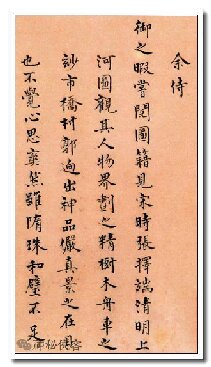 余侍
御之暇嘗閱圖籍見宋時張擇端清明上
河圖觀其人物界劃之精樹木舟車之
妙市橋村郭迥出神品儼真景之在目
也不覺心思爽然雖隋珠和璧不足